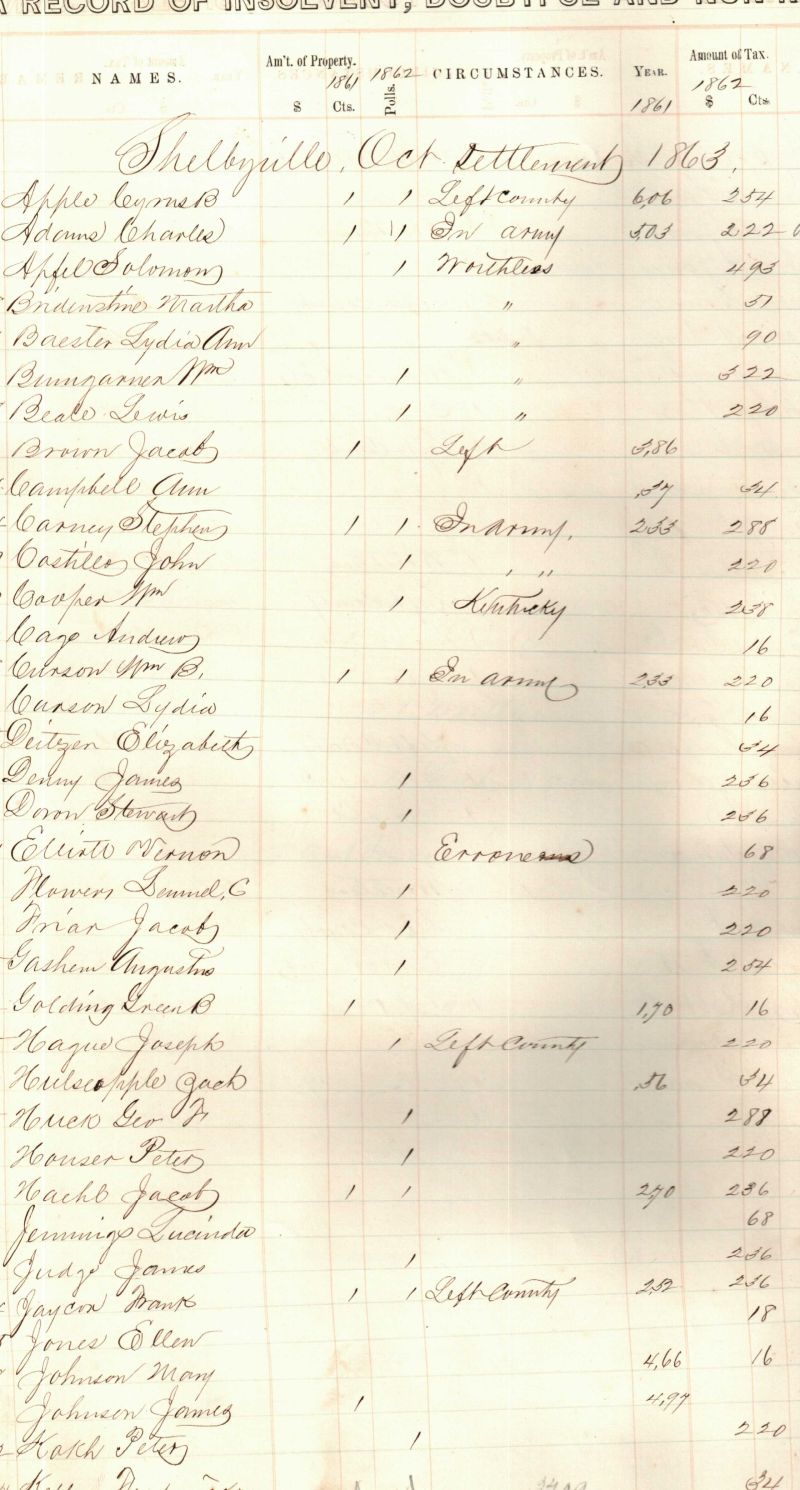 A RECORD OF INSOLVENT, DOUBTFUL AND NON
NAMES. Am't. of Property. 1861 1862 Polls. CIRCUMSTANCES. YEAR. 1861 Amount of Tax. 1862
$ Cts. $ Cts.
Shelbyville, Oct Settlement 1863.
Apple Cyrus B 1 1 Left county 6,06 2 54
Adams Charles 1 1 In army 3,03 2 22
Apfel Solomon 1 Worthless 4 93
Bridenstine Martha " 51
Baester Lydia Ann " 90
Bumgarner Wm 1 " 3 22
Beale Lewis 1 " 2 20
Brown Jacob 1 Left 3,86
Campbell Ann ,37 34
Carney Stephen 1 1 In army, 2 33 2 88
Costillo John 1 " " 2 20
Cooper Wm 1 Kentucky 2 38
Cage Andrew 16
Curson Wm B. 1 1 In army 2,33 2 20
Carson Lydia 16
Deitzen Elizabeth 34
Denny James 1 2 36
Doron Stewart 1 2 36
Elliott Vernon Erroneous 68
Flowers Lemuel, C 1 2 20
Friar Jacob 1 2 20
Gashem Augustus 1 2 54
Golding Green B 1 1,70 16
Hague Joseph 1 Left County 2 20
Hulseapple Zach ,56 34
Huck Geo F 1 2 88
Houser Peter 1 2 20
Hachl Jacob 1 1 2,70 2 36
Jennings Lucinda 68
Judge James 1 2 36
Jaycox Frank 1 1 Left County 2,52 2 36
Jones Ellen 18
Johnson Mary 4,66 16
Johnson James 1 4,97
Kokh Peter 1 2 20
34